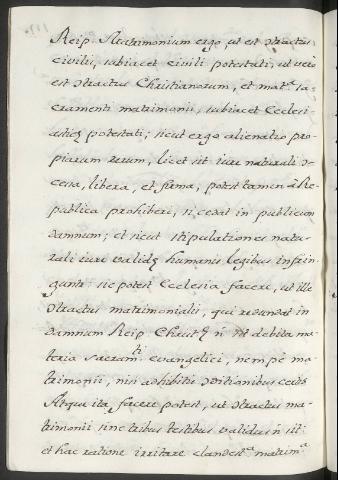 Reip. Matrimonium ergo, ut est ɔtractus
civilis, subiacet civili potestati, ut verò
est ɔtractus Christianorum, et mat.ª sa-
cramenti matrimonii, subiacet Eccles-
asticę potestati; sicut ergo alienatio pro-
piarum rerum, licet sit iure naturali ɔ-
cessa, libera, et firma, potest tamen à Re-
publica prohiberi, si cedat in publicum
damnum; et sicut stipulationes natu-
rali iure validę humanis legibus infrin-
guntr: sic potest Ecclesia facere, ut ille
ɔtractus matrimonialis, qui redundat in
damnum Reip. Christę n̄ sit debita ma-
teria sacramti evangelici, nempè ma-
trimonii, nisi adhibitis ɔditionibus certis
Atqui ita facere potest, ut ɔtractus ma-
trimonii sine tribus testibus validus n̄ sit:
et hac ratione irritare clandest.ª matrim.ª